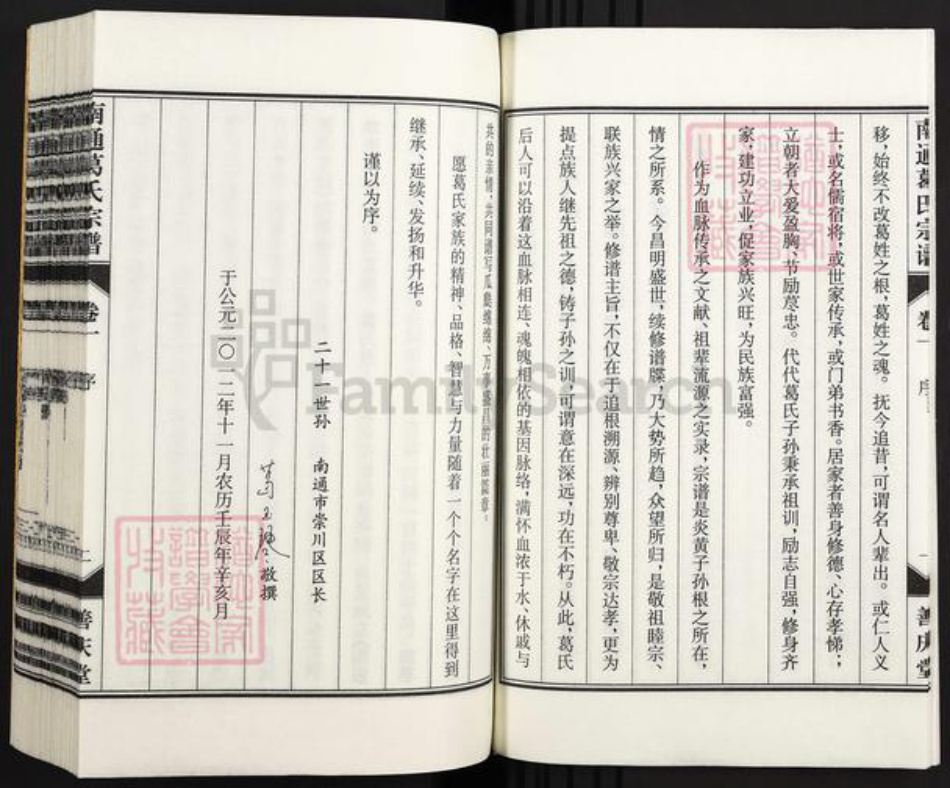 南通葛氏宗谱 卷一 序 一 善庆堂
移，始终不改葛姓之根，葛姓之魂。抚今追昔，可谓名人辈出。或仁人义
士，或名儒宿将，或世家传承，或门弟书香。居家者善身修德、心存孝悌；
立朝者大爱盈胸、节励荩忠。代代葛氏子孙秉承祖训，励志自强，修身齐
家，建功立业，促家族兴旺，为民族富强。
作为血脉传承之文献、祖辈流源之实录，宗谱是炎黄子孙根之所在，
情之所系。今昌明盛世，续修谱牒，乃大势所趋，众望所归，是敬祖睦宗、
联族兴家之举。修谱主旨，不仅在于追根溯源、辨别尊卑、敬宗达孝，更为
提点族人继先祖之德，铸子孙之训，可谓意在深远，功在不朽。从此，葛氏
后人可以沿着这血脉相连、魂魄相依的基因脉络，满怀血浓于水、休戚与
共的亲情，共同谱写瓜瓞绵绵、万事盛昌的壮丽篇章。
愿葛氏家族的精神、品格、智慧与力量随着一个个名字在这里得到
继承、延续、发扬和升华。
谨以为序。
二十一世孙 南通市崇川区区长
葛玉 敬撰
于公元二〇一二年十一月农历壬辰年辛亥月
南通葛氏宗谱 卷一 序 二 善庆堂
FamilySearch
谱学会
收藏